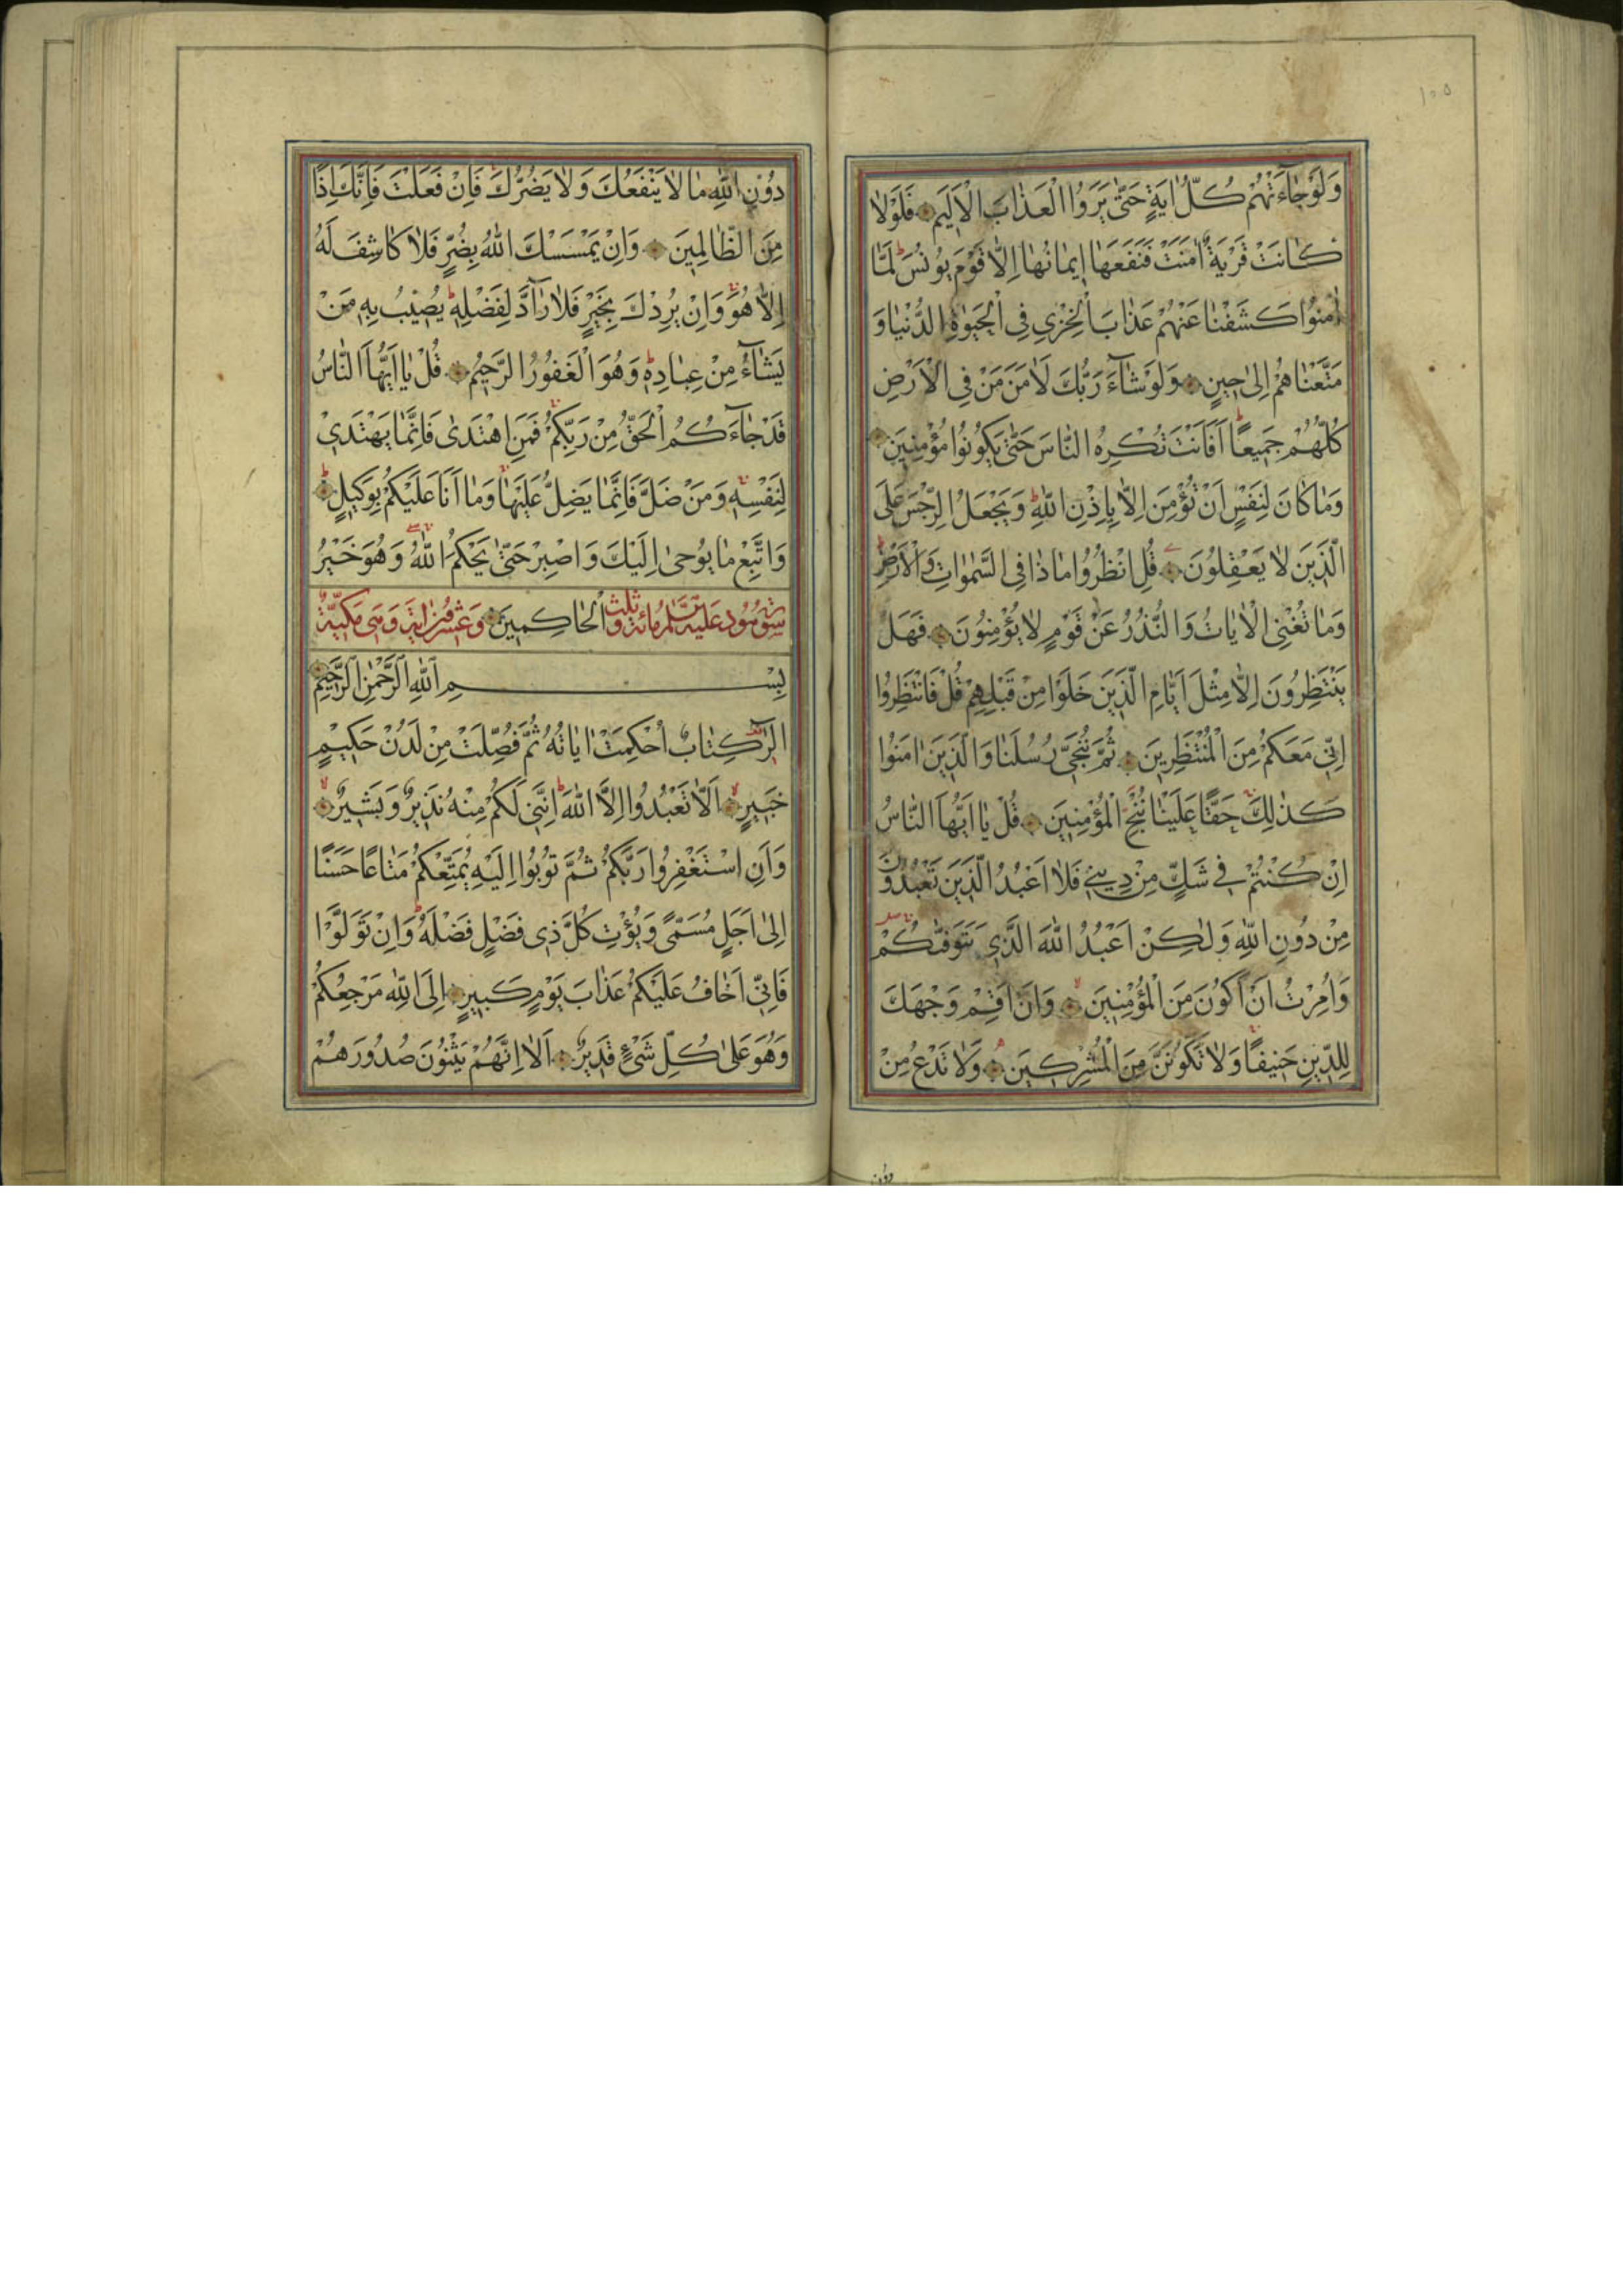 ١٠٥
وَلَوْ جَٓاءَتْهُمْ كُلُّ اٰيَةٍ حَتّٰى يَرَوُا الْعَذَابَ الْاَلِيمَ فَلَوْلَا
كَانَتْ قَرْيَةٌ اٰمَنَتْ فَنَفَعَهَا اِيمَانُهَا اِلَّا قَوْمَ يُونُسَ ط لَمَّا
اٰمَنُوا كَشَفْنَا عَنْهُمْ عَذَابَ الْخِزْىِ فِى الْحَيٰوةِ الدُّنْيَا وَ
مَتَّعْنَاهُمْ اِلٰى حِينٍ وَلَوْ شَٓاءَ رَبُّكَ لَاٰمَنَ مَنْ فِى الْاَرْضِ
كُلُّهُمْ جَمِيعًا ط اَفَاَنْتَ تُكْرِهُ النَّاسَ حَتّٰى يَكُونُوا مُؤْمِنِينَ
وَمَا كَانَ لِنَفْسٍ اَنْ تُؤْمِنَ اِلَّا بِاِذْنِ اللّٰهِ ط وَيَجْعَلُ الرِّجْسَ عَلَى
الَّذِينَ لَا يَعْقِلُونَ قُلِ انْظُرُوا مَاذَا فِى السَّمٰوَاتِ وَالْاَرْضِ ط
وَمَا تُغْنِى الْاٰيَاتُ وَالنُّذُرُ عَنْ قَوْمٍ لَا يُؤْمِنُونَ فَهَلْ
يَنْتَظِرُونَ اِلَّا مِثْلَ اَيَّامِ الَّذِينَ خَلَوْا مِنْ قَبْلِهِمْ قُلْ فَانْتَظِرُوا
اِنِّى مَعَكُمْ مِنَ الْمُنْتَظِرِينَ ثُمَّ نُنَجِّى رُسُلَنَا وَالَّذِينَ اٰمَنُوا
كَذٰلِكَ حَقًّا عَلَيْنَا نُنْجِ الْمُؤْمِنِينَ قُلْ يَا اَيُّهَا النَّاسُ
اِنْ كُنْتُمْ فِى شَكٍّ مِنْ دِينِى فَلَا اَعْبُدُ الَّذِينَ تَعْبُدُونَ
مِنْ دُونِ اللّٰهِ وَلٰكِنْ اَعْبُدُ اللّٰهَ الَّذِى يَتَوَفّٰيكُمْ
وَاُمِرْتُ اَنْ اَكُونَ مِنَ الْمُؤْمِنِينَ وَاَنْ اَقِمْ وَجْهَكَ
لِلدِّينِ حَنِيفًا وَلَا تَكُونَنَّ مِنَ الْمُشْرِكِينَ وَلَا تَدْعُ مِنْ
دون
دُونِ اللّٰهِ مَا لَا يَنْفَعُكَ وَلَا يَضُرُّكَ فَاِنْ فَعَلْتَ فَاِنَّكَ اِذًا
مِنَ الظَّالِمِينَ وَاِنْ يَمْسَسْكَ اللّٰهُ بِضُرٍّ فَلَا كَاشِفَ لَهُ
اِلَّا هُوَ وَاِنْ يُرِدْكَ بِخَيْرٍ فَلَا رَٓادَّ لِفَضْلِهِ ط يُصِيبُ بِهِ مَنْ
يَشَٓاءُ مِنْ عِبَادِهِ ط وَهُوَ الْغَفُورُ الرَّحِيمُ قُلْ يَا اَيُّهَا النَّاسُ
قَدْ جَٓاءَكُمُ الْحَقُّ مِنْ رَبِّكُمْ فَمَنِ اهْتَدٰى فَاِنَّمَا يَهْتَدِى
لِنَفْسِهِ وَمَنْ ضَلَّ فَاِنَّمَا يَضِلُّ عَلَيْهَا وَمَا اَنَا عَلَيْكُمْ بِوَكِيلٍ ط
وَاتَّبِعْ مَا يُوحٰى اِلَيْكَ وَاصْبِرْ حَتّٰى يَحْكُمَ اللّٰهُ وَهُوَ خَيْرُ
سورة هود عليه السلام مائة وثلث الْحَاكِمِينَ وعشرون اية وهى مكية
بِسْمِ اللّٰهِ الرَّحْمٰنِ الرَّحِيمِ
الٓرٰ كِتَابٌ اُحْكِمَتْ اٰيَاتُهُ ثُمَّ فُصِّلَتْ مِنْ لَدُنْ حَكِيمٍ
خَبِيرٍ اَلَّا تَعْبُدُوا اِلَّا اللّٰهَ ط اِنَّنِى لَكُمْ مِنْهُ نَذِيرٌ وَبَشِيرٌ
وَاَنِ اسْتَغْفِرُوا رَبَّكُمْ ثُمَّ تُوبُوا اِلَيْهِ يُمَتِّعْكُمْ مَتَاعًا حَسَنًا
اِلٰى اَجَلٍ مُسَمًّى وَيُؤْتِ كُلَّ ذِى فَضْلٍ فَضْلَهُ ط وَاِنْ تَوَلَّوْا
فَاِنِّى اَخَافُ عَلَيْكُمْ عَذَابَ يَوْمٍ كَبِيرٍ اِلَى اللّٰهِ مَرْجِعُكُمْ
وَهُوَ عَلٰى كُلِّ شَىْءٍ قَدِيرٌ اَلَا اِنَّهُمْ يَثْنُونَ صُدُورَهُمْ